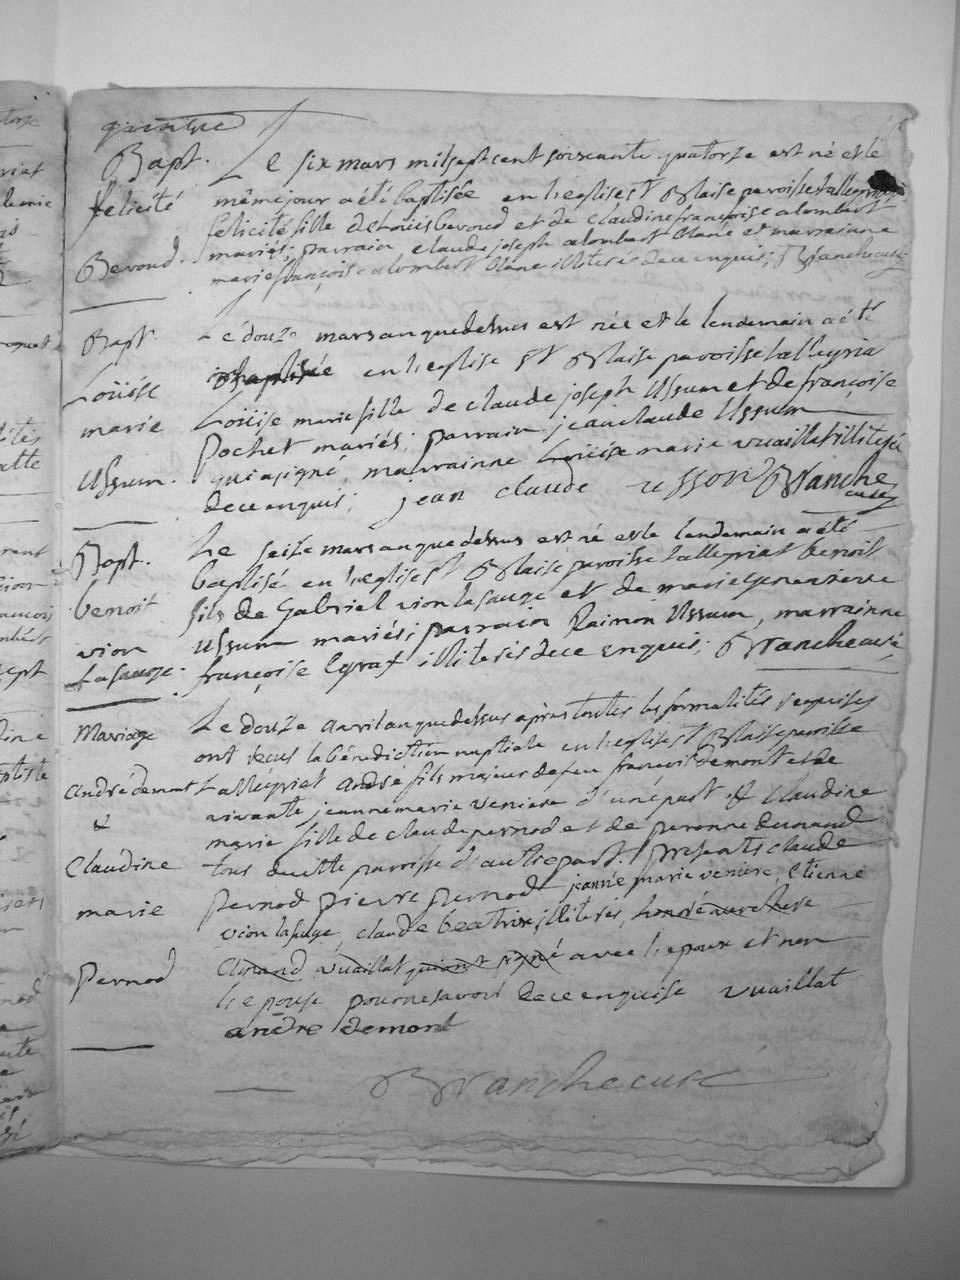 quinque
Bapt. Le six mars mil sept cent soixante quatorze est né et le
félicité même jour a été baptisée en l'eglise st Blaise paroisse talleyriat
félicité fille de Loüis bevoud et de claudine françoise alombert
Bevoud. mariés; parrain claude joseph alombert et marrainne
marie françoise alombert illiterés de ce enquis; Branche curé
Bapt. Le douze mars an que dessus est née et le lendemain a été
baptisée en l'eglise st Blaise paroisse talleyriat
Loüise Loüise marie fille de claude joseph Ussum et de françoise
marie Pochet mariés; parrain jean claude Ussum
Ussum. qui a signé marrainne Loüise marie vuaillat illiterée
de ce enquis; jean claude usson Branche
curé
Bapt. Le seize mars an que dessus est né et le lendemain a été
baptisé en l'eglise st Blaise paroisse talleyriat benoit
benoit fils de Gabriel vion lasauge et de marie genevieve
vion Ussum mariés; parrain Raimon Ussum, marrainne
Lasauge. françoise illiterés de ce enquis; Branche curé
Mariage Le douze avril an que dessus après toutes les formalités requises
ont reçus la bénédiction nuptiale en l'eglise st Blaise paroisse
andré demont talleyriat andré fils majeur de feu françois demont et de
& vivante jeanne marie veniere d'une part & claudine
marie fille de claude pernod et de peronne
Claudine tous de cette paroisse d'autre part. présents claude
marie Pernod pierre pernod jeanne marie veniere, etienne
vion lasauge, claude beatrix, illiterés,
Pernod vuaillat qui ont signé avec l'epoux et non
l'epouse pour ne savoir de ce enquise vuaillat
andre demont
Branche curé